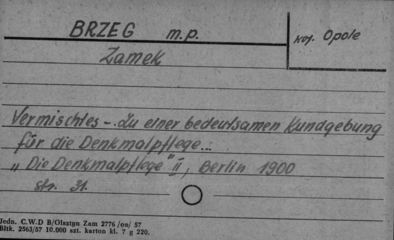 BRZEG m.p.
woj. Opole
Zamek
Vermischtes - Zu einer bedeutsamen Kundgebung
für die Denkmalpflege...
"Die Denkmalpflege" II, Berlin 1900
str. 31.
Jedn. C.W.D B/Olsztyn Zam 2776/on/ 57
Bltk. 2563/57 10.000 szt. karton kl. 7 g 220.